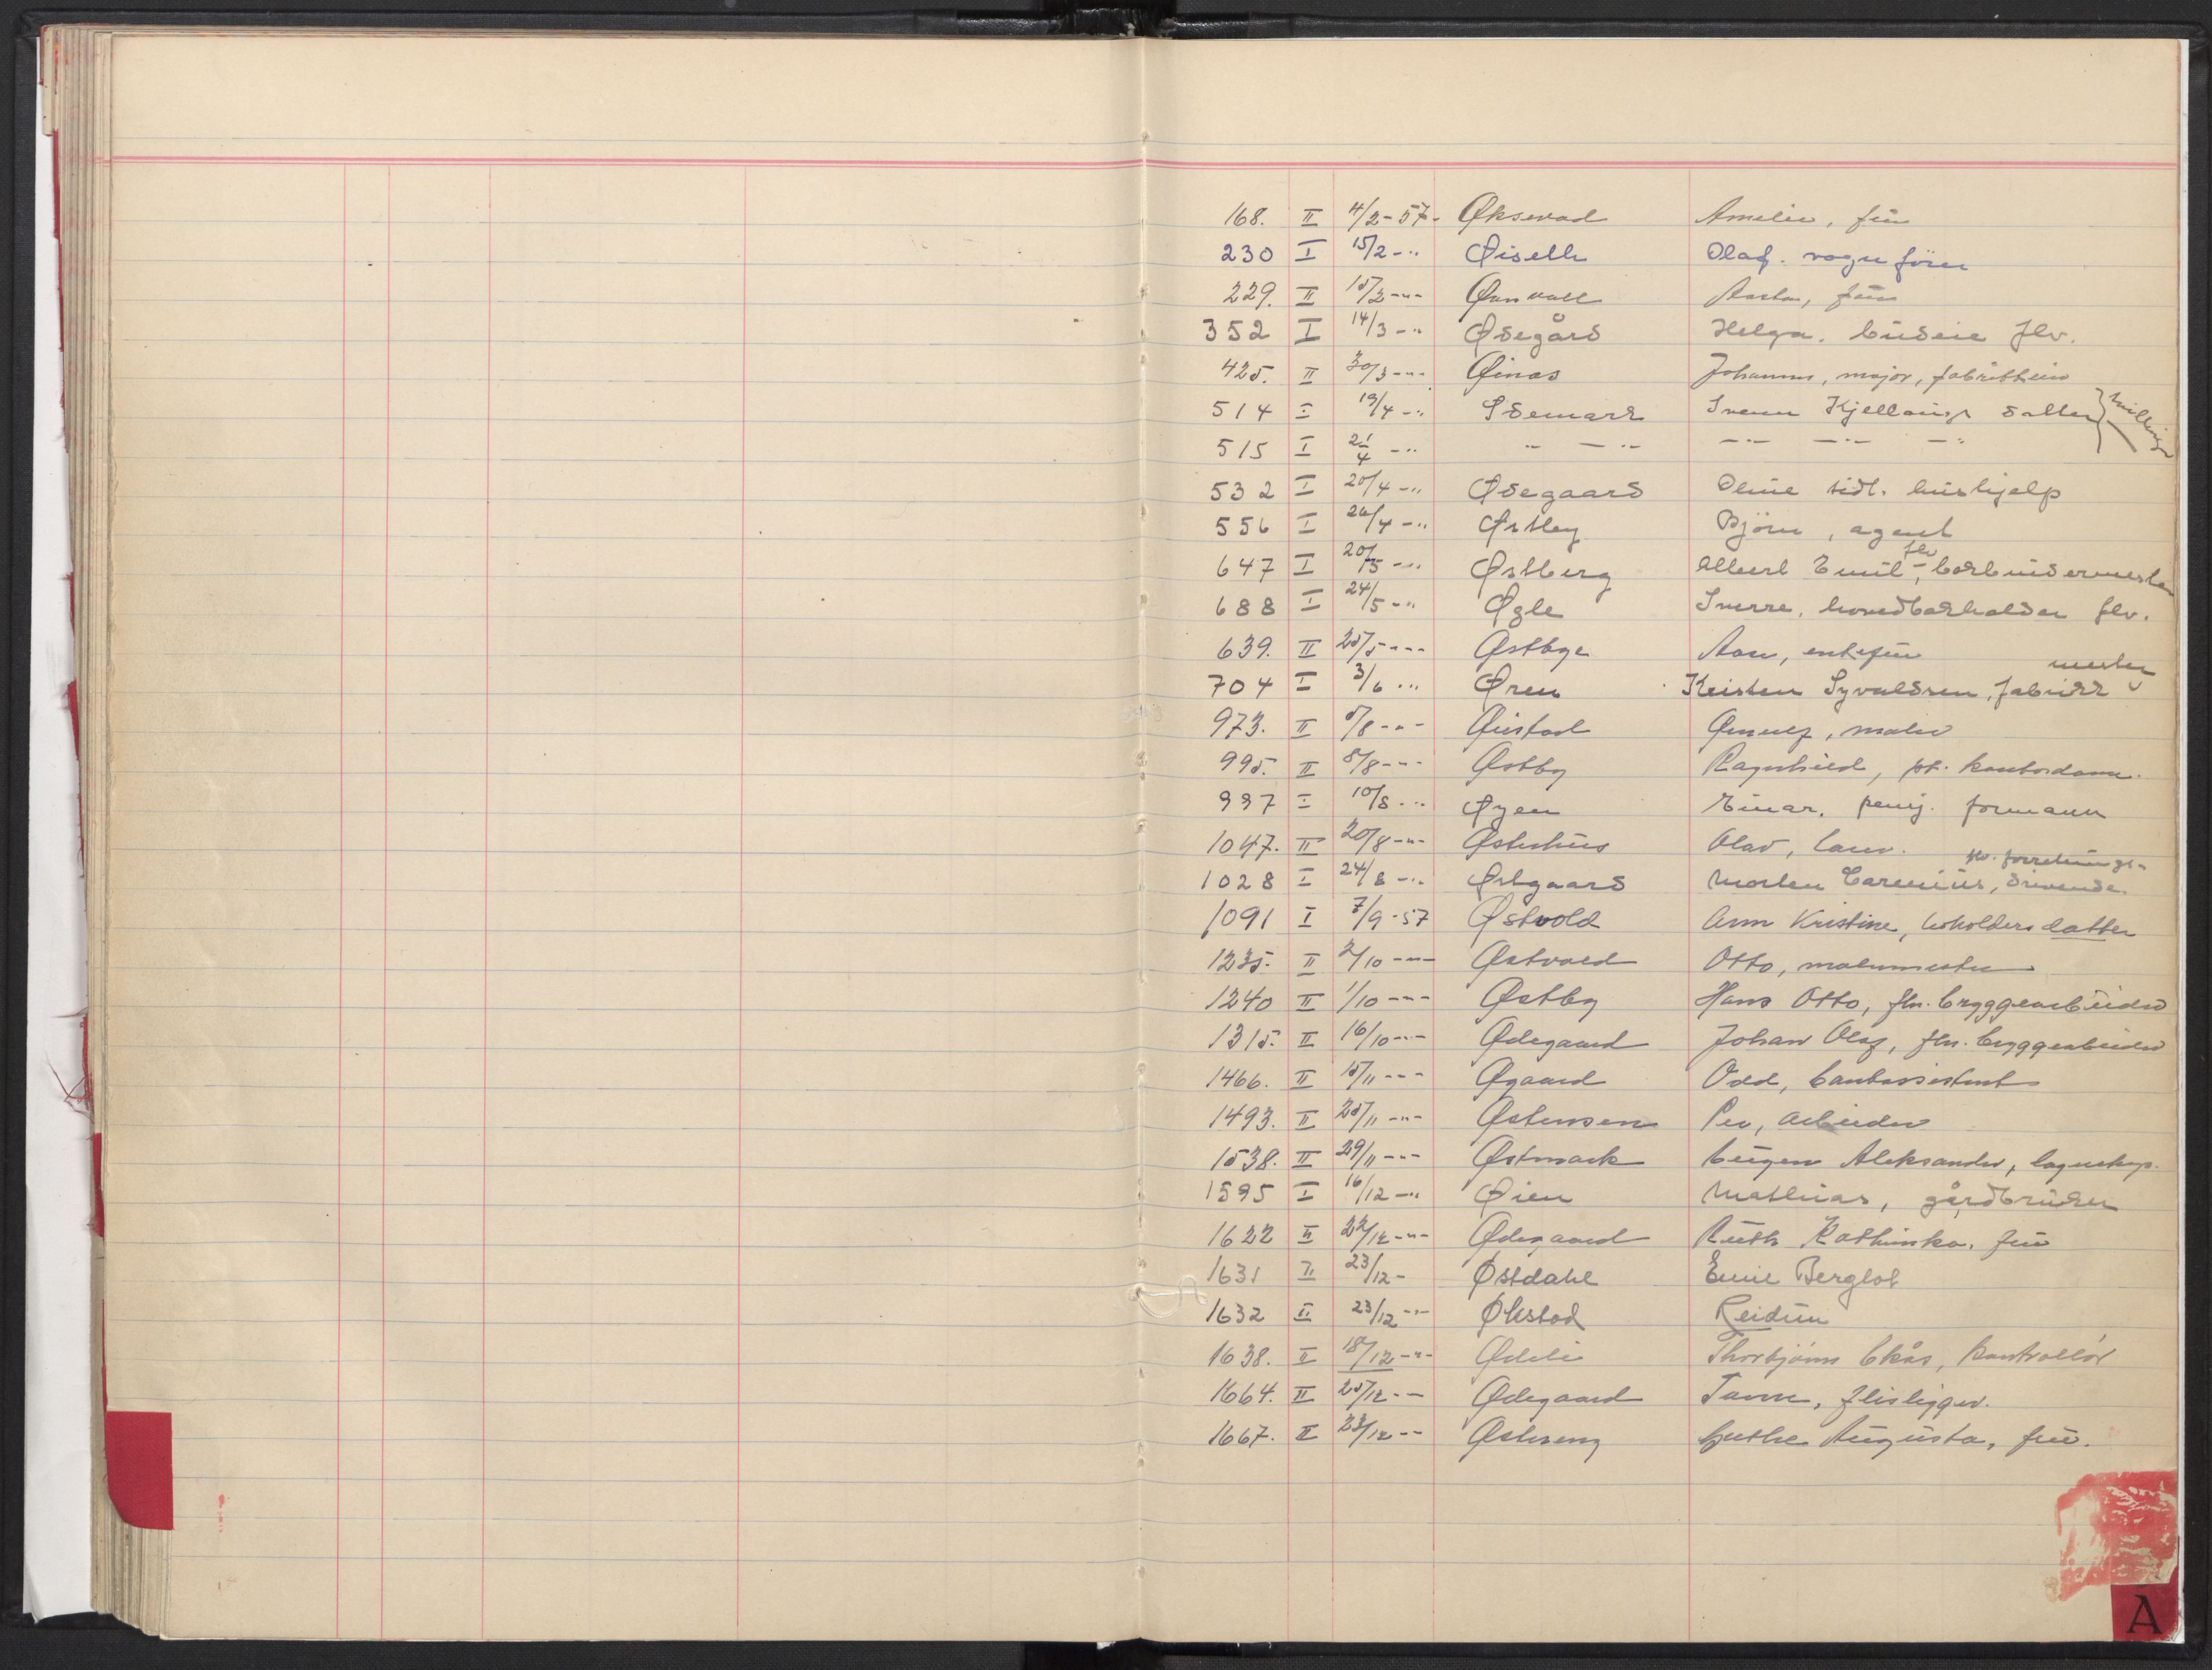 168. II 4/2-57. Øksevad Amelie, frü
230 I 15/2 - " Øiselli Olaf. vognförer
229. II 15/2 - " - Aasta, frü
352 I 14/3 - " Ødegård Helga. büdeie flv.
425. II 30/3 - " - Øinas Johannes, major, fabrikkeier
514 I 19/4 - " Ødemark Svenn Kjellaugs datter } tvillinger
515 I 21/4 - " " - " - " - - " - - "
532 I 20/4 - " Ødegaard Oline tidl. hüshjelp
556 I 26/4 - " Østley Björn, agent
647 I 20/5 - " Østberg Albert Emil, flv bokbindermester
688 I 24/5 - " Øgle Sverre, hovedbokholder flv.
639. II 25/5 - " - Østbye Aase, enkefrü
704 I 3/6 " Øren Kristen Syvaldsen, fabrikkmester
973. II 5/8 - " - Øiestad Ørnulf, maler
995. II 8/8 - " - Østby Ragnhild, pt. kontordame.
997 I 10/8 - " Øyen Einar. penj. formann
1047. II 20/8 - " - Østerhüs Olav,
1028 I 24/8 - " Østgaard Morten Carenius, flv. forretningsdrivende.
1091 I 7/9-57 Østvold Ann Kristine, bokholders datter
1235. II 2/10 - " - Østvold Otto, malermester
1240 II 1/10 - " - Østby Hans Otto, flv. bryggearbeider
1315. II 16/10 - " - Ødegaard Johan Olaf, flv. bryggearbeider
1466. II 15/11 - " - Øgaard Odd, bankassistent
1493. II 25/11 - " - Østensen Per, arbeider
1538. II 29/11 - " - Østmark Birger Aleksander, lagereksp.
1595 I 16/12 - " Øien Mathias, gårdbrüker
1622 II 22/12 - " - Ødegaard Rüth Kathinka, frü
1631 II 23/12 - Østdahl Emil Berglot
1632 II 23/12 - " - Økstad Reidün
1638. II 18/12 - " - Ødeli Thorbjörn Ekås, kontrollör
1664. II 25/12 - - Ødegaard flisligger.
1667. II 23/12 - - Østreng Gusthe Aügüsta, frü.
A